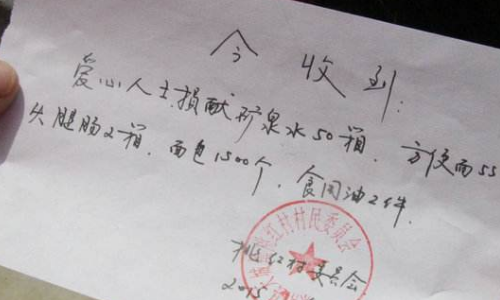 今收到：
爱心人士捐献矿泉水50箱，方便面55
火腿肠2箱，面包1500个，食用油2件.
红村村民委员会
桃红村委员会